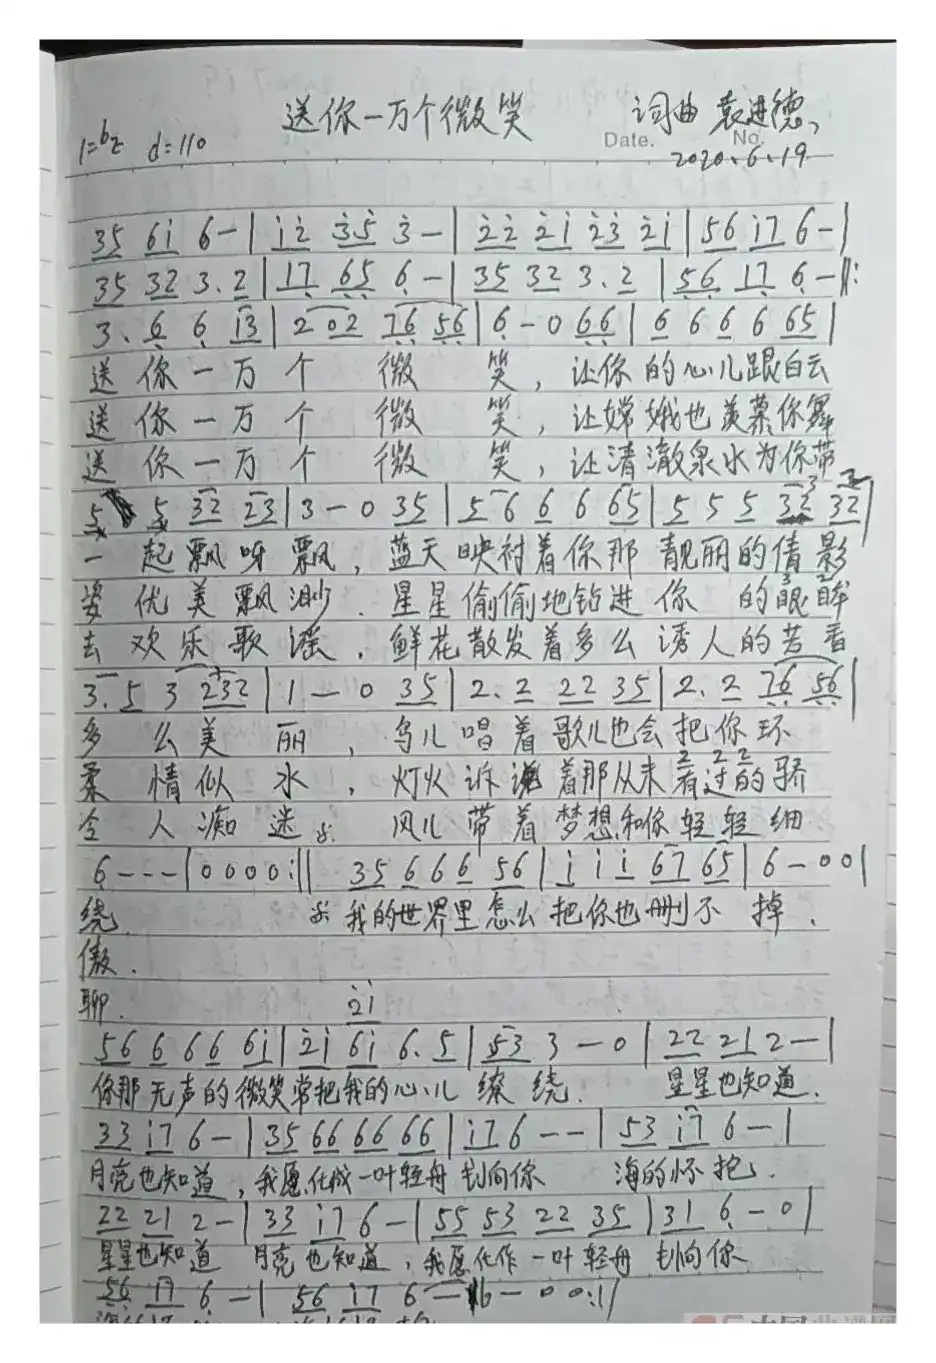 送你一万个微笑 词曲 袁进德、
1=bE d=110 Date. No.
2020.6.19
35 6i 6 - | i2 35 3 - | 22 2i 23 2i | 56 i7 6 - |
35 32 3. 2 | 17 65 6 - | 35 32 3. 2 | 56 17 6 - ‖:
3. 6 6 13 | 2 02 76 56 | 6 - 0 66 | 6 6 6 6 65 |
送你一万个微笑，让你的心儿跟白云
送你一万个微笑，让嫦娥也羡慕你舞
送你一万个微笑，让清澈泉水为你带
5 5 32 23 | 3 - 0 35 | 5 6 6 6 65 | 5 5 5 32 32 |
一起飘呀飘，蓝天映衬着你那靓丽的倩影
姿优美飘渺．星星偷偷地钻进你的眼眸
去欢乐歌谣．鲜花散发着多么诱人的芳香
3. 5 3 232 | 1 - 0 35 | 2. 2 22 35 | 2. 2 76 56 |
多么美丽，鸟儿唱着歌儿也会把你环
柔情似水，灯火诉说着那从未有过的骄
令人痴迷 风儿带着梦想和你轻轻细
6 - - - | 0 0 0 0 :‖ 35 6 6 6 56 | i i i 67 65 | 6 - 0 0 |
绕． 我的世界里怎么把你也删不掉．
傲．
聊．
2i
56 6 6 6 6i | 2i 6i 6. 5 | 53 3 - 0 | 22 21 2 - |
你那无声的微笑常把我的心儿缭绕． 星星也知道．
33 i7 6 - | 35 66 66 66 | i7 6 - - | 53 i7 6 - |
月亮也知道，我愿化成一叶轻舟划向你 海的怀抱．
22 21 2 - | 33 i7 6 - | 55 53 22 35 | 31 6 - 0 |
星星也知道 月亮也知道，我愿化作一叶轻舟划向你
56 17 6 - | 56 17 6 - 6 - 0 0 :|